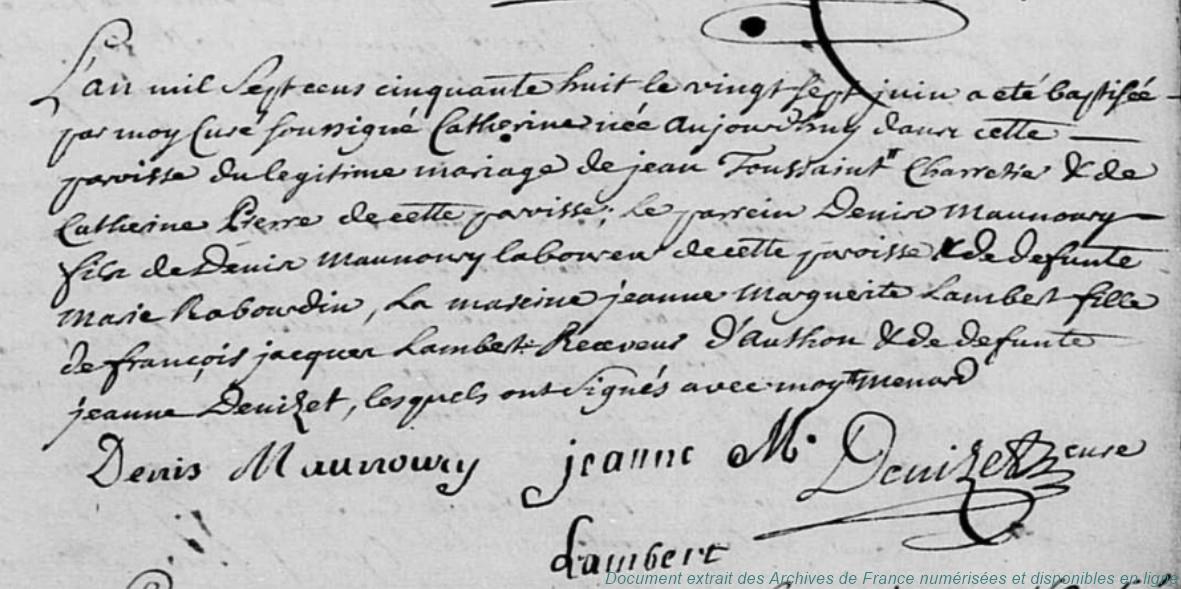 L'an mil Sept cens cinquante huit le vingt sept juin a eté baptisée
par moy Curé soussigné Catherine née aujourdhuy dans cette
paroisse du legitime mariage de jean Toussaint Charretier & de
Catherine Pierre de cette paroisse; le parrein Denis Maunoury
fils de Denis Maunoury laboureur de cette paroisse & de defunte
Marie Rabourdin, La mareine jeanne Marguerite Lambert fille
de françois jacques Lambert Receveur d'Authon & de defunte
jeanne Denizet, lesquels ont signés avec moy Menard
Denis Maunoury jeanne M. Denizet curé
Lambert
Document extrait des Archives de France numérisées et disponibles en ligne